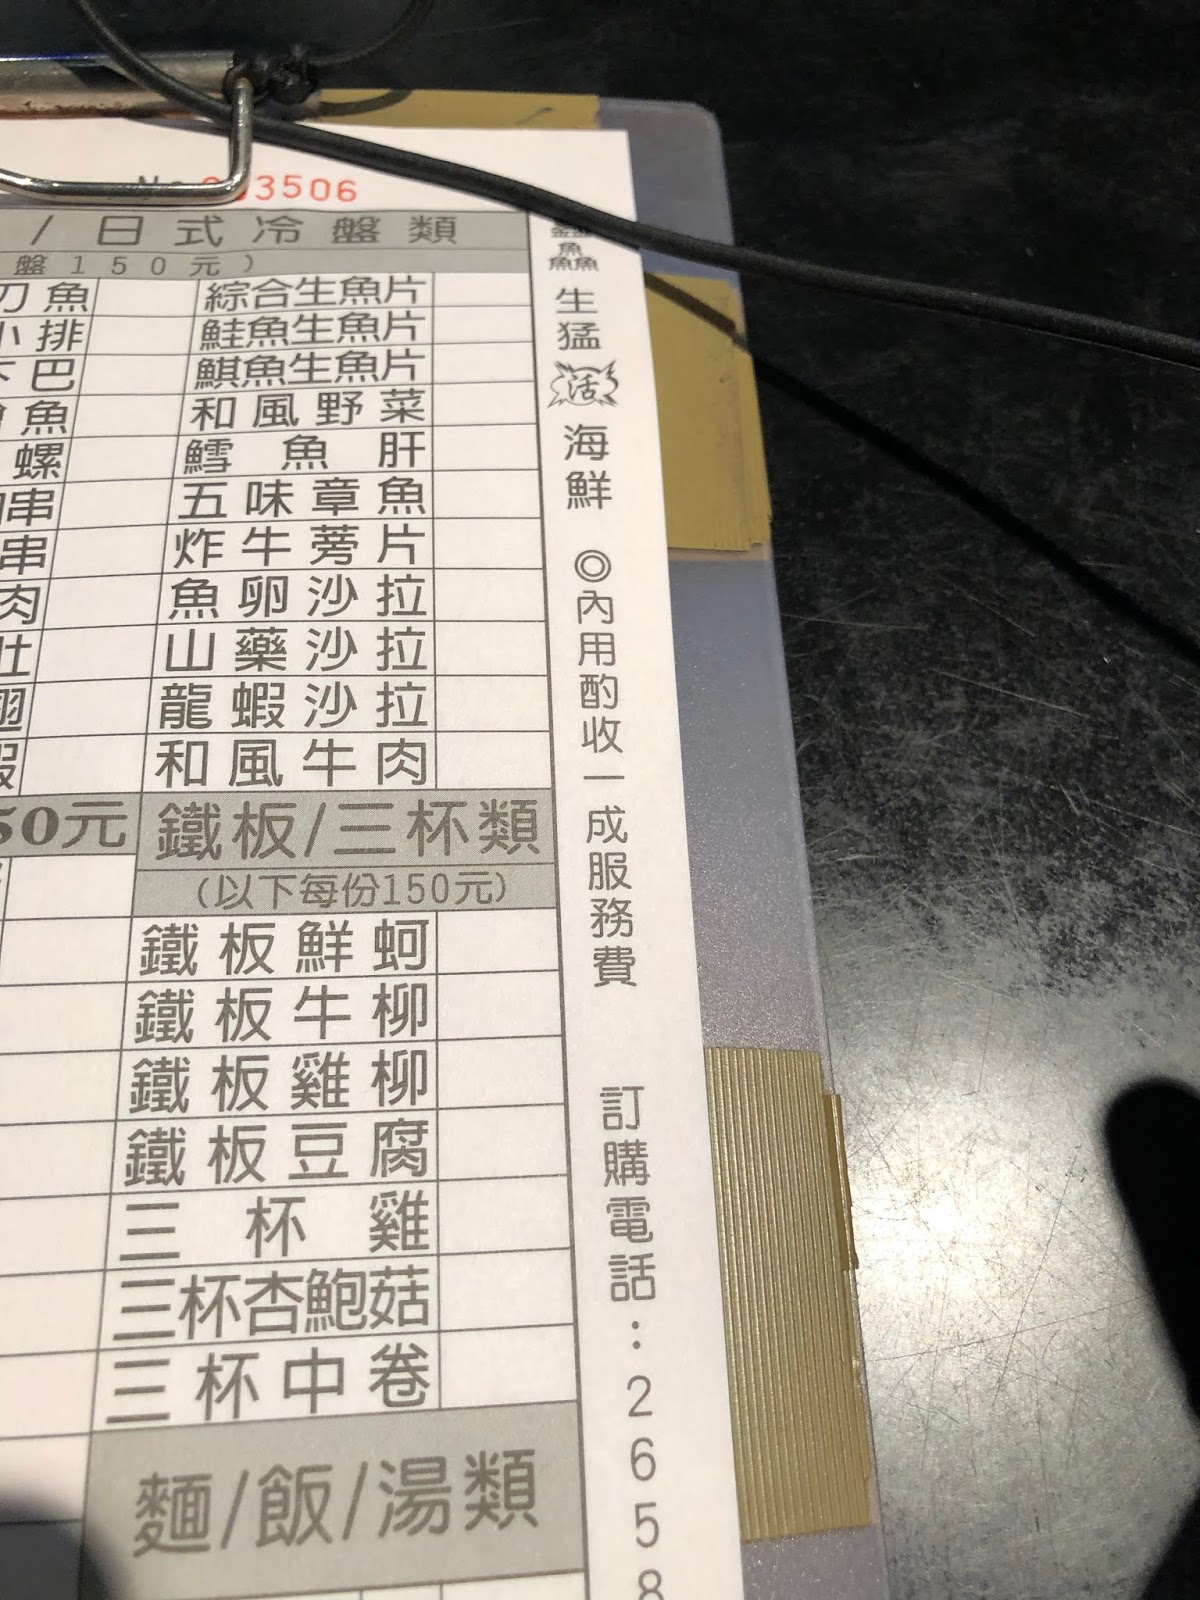 3506
/日式冷盤類
盤150元)
魚
綜合生魚片
小排
鮭魚生魚片
巴
鯕魚生魚片
魚
和風野菜
螺
鱈魚肝
串
五味章魚
串
炸牛蒡片
肉
魚卵沙拉
山藥沙拉
翅
龍蝦沙拉
和風牛肉
50元
鐵板/三杯類
(以下每份150元)
鐵板鮮蚵
鐵板牛柳
鐵板雞柳
鐵板豆腐
三杯雞
三杯杏鮑菇
三杯中卷
麵/飯/湯類
鱻生猛活海鮮 ◎內用酌收一成服務費 訂購電話:2658